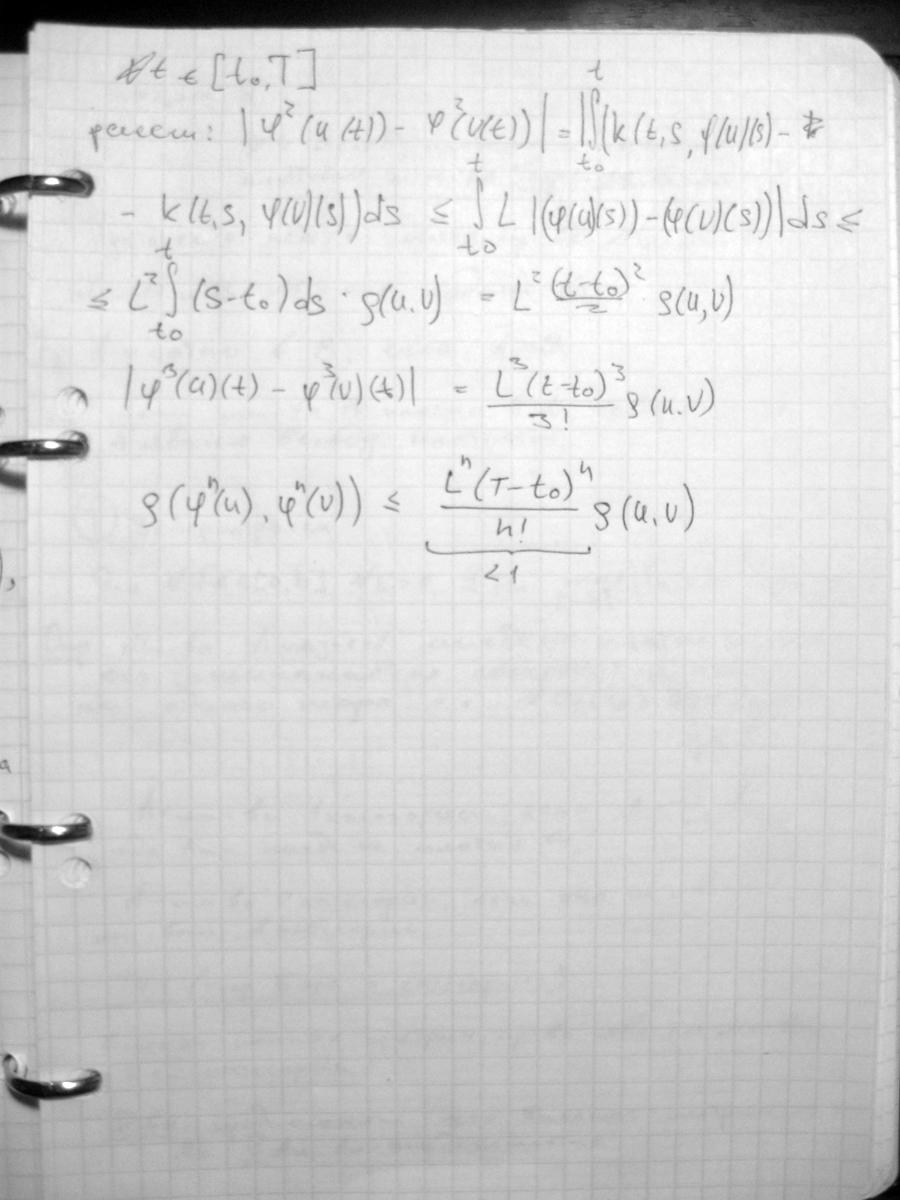 ∀t ∈ [t₀, T]
: |φ²(u(t)) - φ²(v(t))| = |∫_{t₀}^{t} (k(t,s, φ(u)(s) -
- k(t,s, φ(v)(s)) ds ≤ ∫_{t₀}^{t} L |(φ(u)(s)) - (φ(v)(s))| ds ≤
≤ L² ∫_{t₀}^{t} (s-t₀) ds · ρ(u,v) = L² (t-t₀)²/2 ρ(u,v)
|φ³(u)(t) - φ³(v)(t)| = L³(t-t₀)³/3! ρ(u,v)
ρ(φⁿ(u), φⁿ(v)) ≤ Lⁿ(T-t₀)ⁿ/n! ρ(u,v)
<1